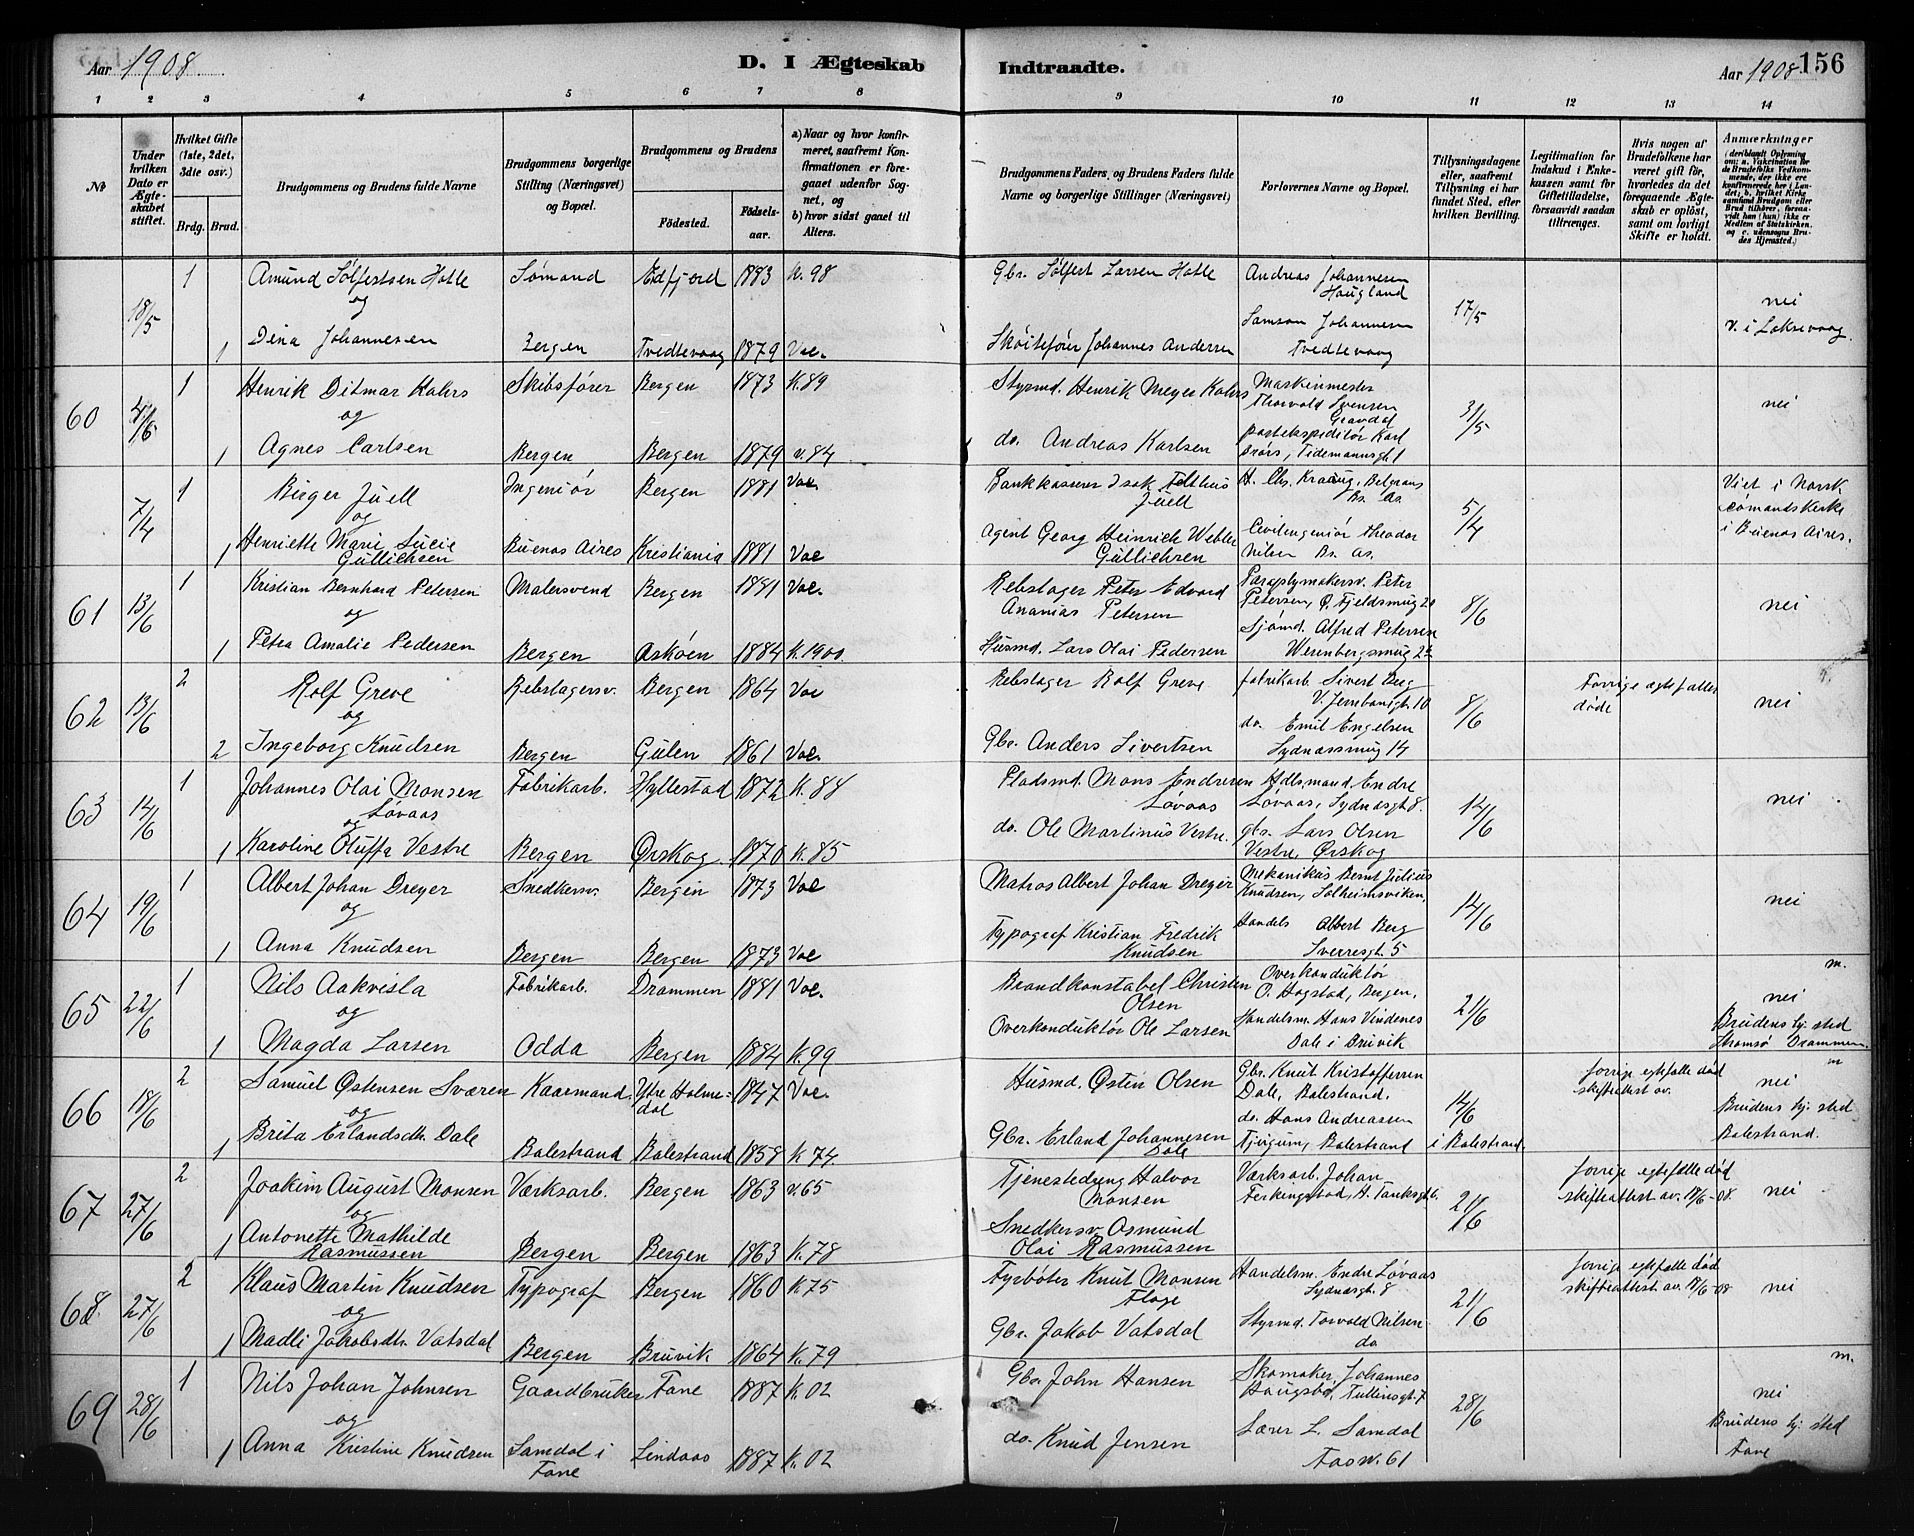 Aar 1908
D. I Ægteskab
Indtraadte.
Aar 1908 156
1 2 3 4 5 6 7 8 9 10 11 12 13 14
No
Under hvilken Dato er Ægteskabet stiftet.
Hvilket Gifte (1ste, 2det, 3die osv.)
Brdg. Brud.
Brudgommens og Brudens fulde Navne
Brudgommens borgerlige Stilling (Næringsvei) og Bopæl.
Brudgommens og Brudens
Fødested. Fødselsaar.
a) Naar og hvor konfirmeret, saafremt Konfirmationen er foregaaet udenfor Sognet, og
b) hvor sidst gaaet til Alters.
Brudgommens Faders og Brudens Faders fulde Navne og borgerlige Stillinger (Næringsvei)
Forlovernes Navne og Bopæl.
Tillysningsdagene eller, saafremt Tillysning ei har fundet Sted, efter hvilken Bevilling.
Legitimation for Indskud i Enkekassen samt for Giftetilladelse, forsaavidt saadan tiltrænges.
Hvis nogen af Brudefolkene har været gift før, hvorledes da det foregaaende Ægteskab er opløst, samt om lovligt Skifte er holdt.
Anmærkninger
18/5 1 Amund Sølfestsen Hotle Sømand Edfjord 1883 K. 98 Gbr. Sølfest Larsen Hotle Andreas Johannesen Haugland 17/5 nei
og Samson Johannesen v. i Laksevaag
1 Dina Johannesen Bergen Tvedtevaag 1879 Voe. Skøitefører Johannes Andersen Tvedtevaag
60 4/6 1 Henrik Ditmar Kahrs Skibsfører Bergen 1873 K. 89 Styrmd. Henrik Meyer Kahrs Maskinmester Thorvald Svensen Gravdal 31/5 nei
og
1 Agnes Carlsen Bergen Bergen 1879 v. 84 do. Andreas Karlsen postekspeditør Karl Brørs, Tidemannsgt. 1
7/4 1 Birger Juell Ingeniør Bergen 1881 Voe. Bankkasserer Isak Felthus Juell H. Chr. Kraaug, Belgrans Bs. As. 5/4 Viet i Norsk
og sømandskirke
1 Henriette Marie Lucie Gullichsen Buenos Aires Kristiania 1881 Voe Agent Georg Heinrich Weble Gullichsen Civilingeniør Theodor Nilsen Bs. As. i Buenos Aires.
61 13/6 1 Kristian Bernhard Petersen Malersvend Bergen 1881 Voe. Rebslager Peter Edvard Ananias Petersen Paraplymakersv. Peter Petersen, Ø. Fjeldsmug 20 8/6 nei
og
1 Petra Amalie Pedersen Bergen Askøen 1884 K. 1900. Husmd. Lars Olai Pedersen Sjømd. Alfred Petersen Werenbergsmug 24
62 13/6 2 Rolf Greve Rebslagersv. Bergen 1864 Voe Rebslager Rolf Greve fabrikarb. Sivert Berg V. Jernbanegt. 10 8/6 Forrige ægtefæller døde nei
og
2 Ingeborg Knudsen Bergen Gulen 1861 Voe. Gbr. Anders Sivertsen do. Emil Engelsen Sydnæssmug 14
63 14/6 1 Johannes Olai Monsen Løvaas Fabrikarb. Hyllestad 1872 K. 88 Pladsmd. Mons Endresen Løvaas Hdlsmand Endre Løvaas, Sydnæsgt. 8. 14/6 nei
og
1 Karoline Oluffa Vestre Bergen Ørskog 1870 K. 85 do. Ole Martinus Vestre. gbr. Lars Olsen Vestre, Ørskog
64 19/6 1 Albert Johan Dreyer Snedkersv. Bergen 1873 Voe Matros Albert Johan Dreyer Mekanikus Bernt Julius Knudsen, Solheimsviken. 14/6 nei
og
1 Anna Knudsen Bergen Bergen 1873 Voe Typograf Kristian Fredrik Knudsen Handels Albert Berg Sverresgt. 5
65 22/6 1 Nils Aakvisla Fabrikarb. Drammen 1881 Voe. Brandkonstabel Christen Olsen Overkonduktør O. Hogstad, Bergen. 21/6 m. nei
og
1 Magda Larsen Odda Bergen 1884 K. 99 Overkonduktør Ole Larsen Handelsm. Hans Vindenes Dale i Bruvik Brudens hj. sted Strømsø Drammen.
66 18/6 2 Samuel Østensen Sværen Kaarmand. Ytre Holmedal 1847 Voe. Husmd. Østen Olsen Gbr. Knut Kristoffersen Dale, Balestrand. 14/6 i Balestrand forrige egtefælle død skifteattest av. m nei
og
1 Brita Erlandsdtr. Dale Balestrand Balestrand 1858 K 74. Gbr. Erland Johannesen Dale do. Hans Andreassen Tjugum, Balestrand Brudens hj. sted Balestrand.
67 27/6 2 Joakim August Monsen Værksarb. Bergen 1863 v. 65 Tjenestedreng Halvor Monsen Værksarb. Johan Ferkingstad, H. Tanksgt. 6. 21/6 forrige egtefælle død skifteattest av. 18/6-08. nei
og
1 Antonette Mathilde Rasmussen Bergen Bergen 1863 K. 78 Snedkersv. Osmund Olai Rasmussen
68 27/6 2 Klaus Martin Knudsen Typograf Bergen 1860 K. 75 Fyrbøter Knut Monsen Flage Handelsm. Endre Løvaas Sydnæsgt. 8 21/6 forrige egtefælle død skifteattest av. 18/6-08 nei
og
1 Madli Jakobsdtr. Vatsdal Bergen Bruvik 1864 K. 79 Gbr. Jakob Vatsdal Styrmd. Torvald Nilsen do
69 28/6 1 Nils Johan Johnsen Gaardbruker Fane 1887 K. 02 Gbr John Hansen Skomaker, Johannes Haugsbø, Tullinsgt. 7 28/6 m. nei
og
1 Anna Kristine Knudsen Samdal i Fane Lindaas 1887 K. 02 do. Knud Jensen Lærer L. Samdal Brudens hj. sted Fane